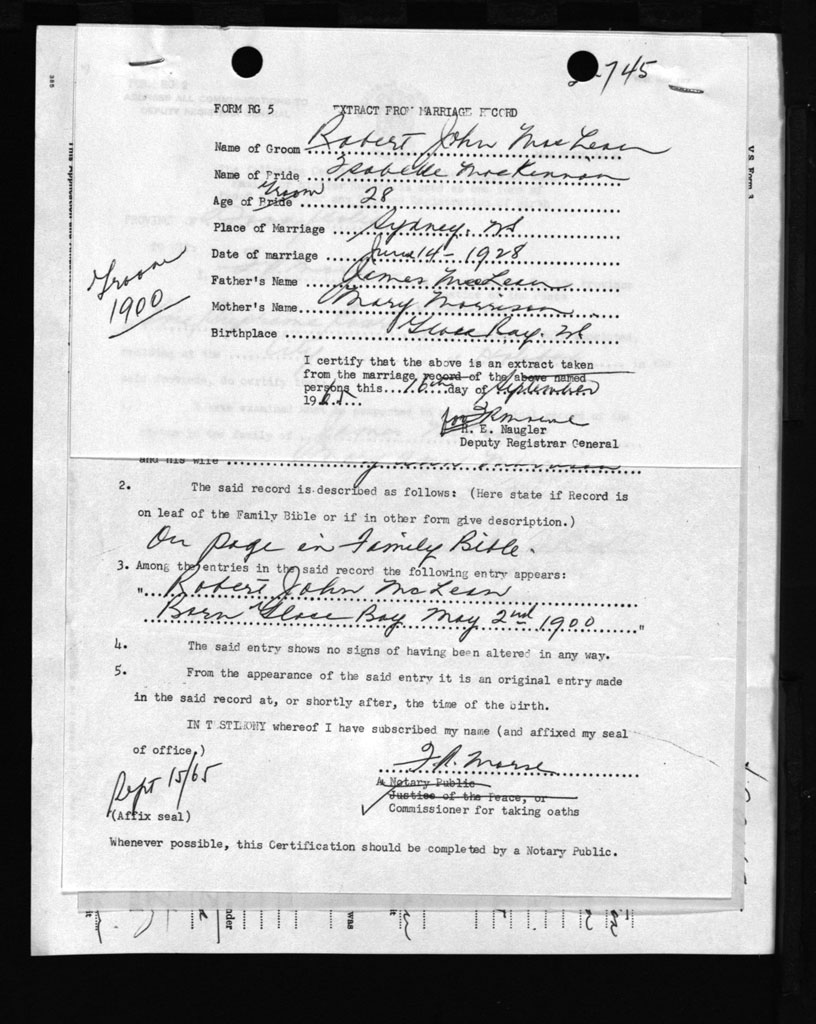 745
FORM RG 5 EXTRACT FROM MARRIAGE RECORD
Name of Groom Robert John MacLean
Name of Bride Isabelle MacKinnon
Groom
Age of Bride 28
Place of Marriage Sydney, NS
Date of marriage June 14 - 1928
Father's Name James MacLean
Mother's Name Mary Morrison
Birthplace Glace Bay, NS
Groom
1900
I certify that the above is an extract taken
from the marriage record of the above named
persons this 16th day of September
1965
for
H. E. Naugler
Deputy Registrar General
and his wife
2. The said record is described as follows: (Here state if Record is
on leaf of the Family Bible or if in other form give description.)
On page in Family Bible.
3. Among the entries in the said record the following entry appears:
" Robert John McLean
Born Glace Bay May 2nd 1900 "
4. The said entry shows no signs of having been altered in any way.
5. From the appearance of the said entry it is an original entry made
in the said record at, or shortly after, the time of the birth.
IN TESTIMONY whereof I have subscribed my name (and affixed my seal
of office,)
F. R. Morse
Sept 15/65
A Notary Public
Justice of the Peace, or
(Affix seal) Commissioner for taking oaths
Whenever possible, this Certification should be completed by a Notary Public.
V.S. Form 3
385
nder
was